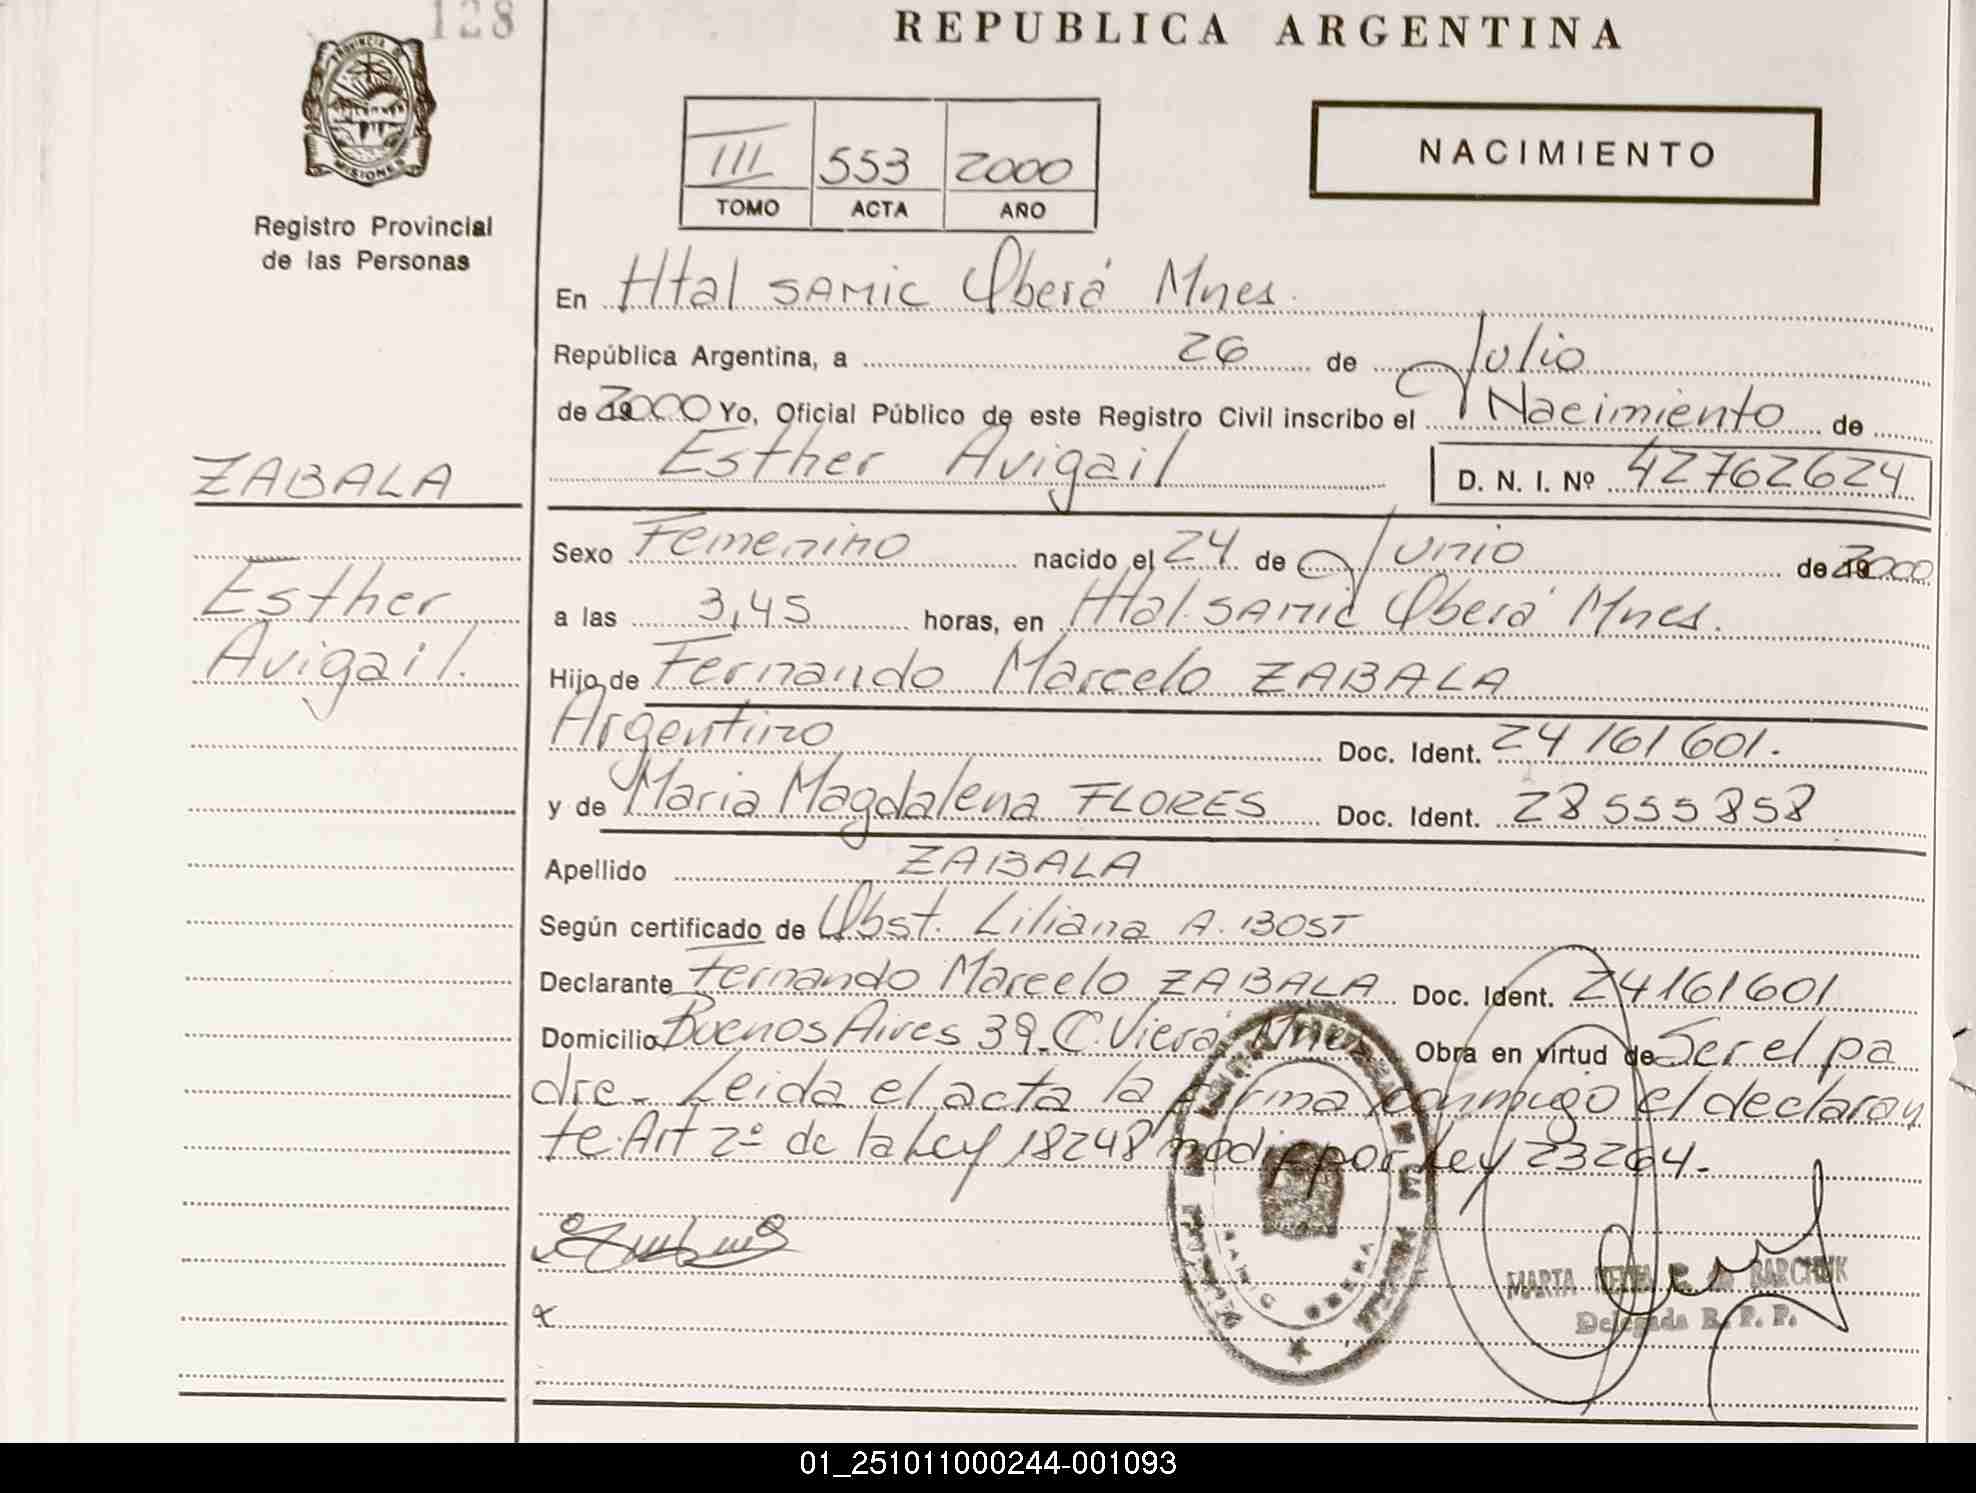 128
REPUBLICA ARGENTINA
PROVINCIA D
MISIONES
Registro Provincial
de las Personas
III 553 2000
TOMO ACTA AÑO
NACIMIENTO
En Htal SAMIC Oberá Mnes.
República Argentina, a 26 de Julio
de 2000 Yo, Oficial Público de este Registro Civil inscribo el Nacimiento de
Esther Avigail D. N. I. Nº 42762624
ZABALA
Esther
Avigail.
Sexo Femenino nacido el 24 de Junio de 2000
a las 3,45 horas, en Htal. SAMIC Oberá Mnes.
Hijo de Fernando Marcelo ZABALA
Argentino Doc. Ident. 24161601.
y de Maria Magdalena FLORES Doc. Ident. 28555858
Apellido ZABALA
Según certificado de Obst. Liliana A. BOST
Declarante Fernando Marcelo ZABALA Doc. Ident. 24161601
Domicilio Buenos Aires 39_C. Viera Mnes Obra en virtud de Ser el pa
dre_ Leida el acta la firma conmigo el declaran
te. Art 2º de la Ley 18248 modif por Ley 23264.
SAMIC OBERA
MARTA BARCHUK
Delegada R. P. P.
01_251011000244-001093